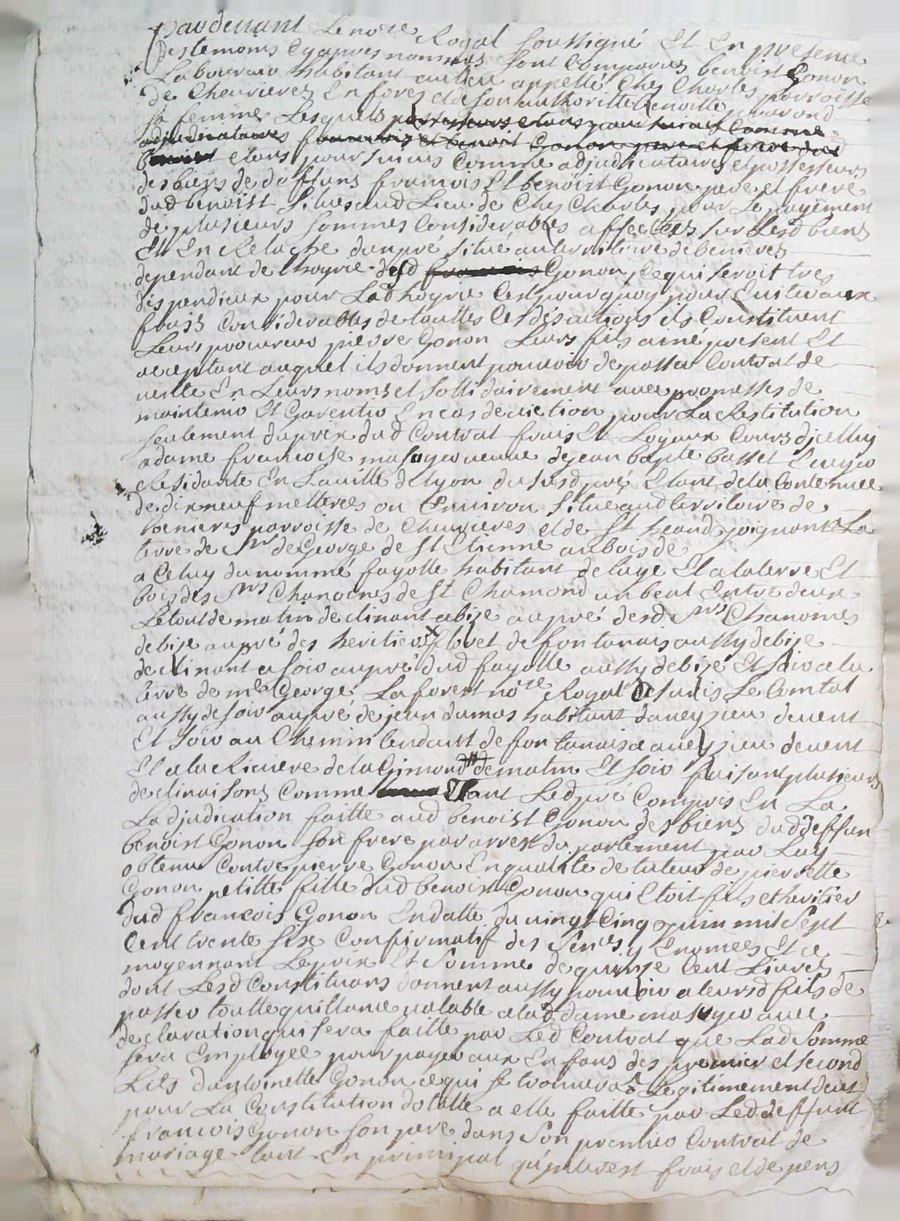 Pardevant Le not.re Royal soussigné Et En presence
Des temoins Cy apres nommés sont Comparus benoist Gonon
Laboureur habitant au lieu appellé Chez Charles parroisse
de Chevrieres En forez et de son authorité benoitte
sa femme Lesquels possesseurs et tous poursuivis Comme
adjudicataires francois et benoist Gonon pere et frere dud
benoist et tous poursuivis Comme adjudicataires et possesseurs
des biens de deffuns francois Et benoist Gonon pere et frere
dud benoist situes aud Lieu de Chez Charles pour Le payement
de plusieurs sommes Considerables affectées sur Lesd biens
Et En Relache du pré situé au territoire de benieres
dependant de l'hoyrie desd francois Gonon, ce qui seroit tres
dispendieux pour Lad hoyrie C'est pourquoy pour Eviter aux
frais Considerables de touttes Ces dis actions ils Constituent
Leurs procureur pierre Gonon Leurs fils ainé present Et
acceptant auquel ils donnent pouvoir de passer Contrat de
vente En Leurs noms et sollidairement avec promesses de
maintenir Et Garentir En cas d'eviction pour La Restitution
seulement du prix dud Contrat frais Et Loyaux Couts d'jcelluy
a dame francoise masoyer veuve de jean bapte basset Ecuyer
Residante En La ville de Lyon du susd pré Etant de la Contenue
de dix neuf metterées ou Environ situé aud territoire de
benieres parroisse de Chevrieres et de St heand joignant La
terre de Sr de George de St Etienne au bois de
a Celuy du nommé fayolle habitant de Laye Et a la terre Et
bois des Srs Chanoines de St Chamond un beal Entre deux
Le tout de matin declinant a bize au pré desd Srs Chanoines
de bize au pré des heritiers flovet de fontanais aussy de bize
declinant a soir au pré dud fayolle aussy de bize Et soir a la
terre de me George La forest not.re Royal Le Comtal
aussy de soir au pré de jean dumas habitant daveyzieu de vent
Et soir au Chemin tendant de fontanais a aveyzieu de vent
Et a la Riviere de la Gimond de matin Et soir faisant plusieurs
declinaisons Comme Etant Led pré Compris En La
Ladjudication faitte aud benoist Gonon des biens dud deffun
benoist Gonon son frere par arrest du parlement par Luy
obtenu Contre pierre Gonon En qualité de tuteur de pierrette
Gonon petitte fille dud benoist Gonon qui Etoit fils et heritier
dud francois Gonon En datte du vingt Cinq juin mil Sept
Cent trente six Confirmatif des y Enoncées Et ce
moyennant Le prix Et Somme de quinze Cent Livres
dont Lesd Constituans donnent aussy pouvoir a leursd fils de
passer toutte quittance valable a lad dame masoyer avec
declaration qui sera faitte par Led Contrat que Lad Somme
sera Employée pour payer aux Enfans des premier et second
Lits d'antoinette Gonon ce qui se trouvera Legitimement deus
pour La Constitution dotalle a elle faitte par Led deffunt
francois Gonon son pere dans Son premier Contrat de
mariage tant En principal qu'interest frais et depens